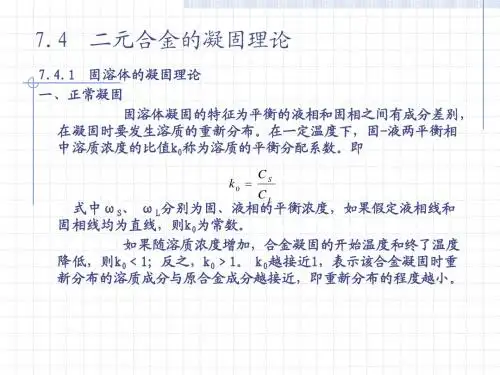 7.4 二元合金的凝固理论
7.4.1 固溶体的凝固理论
一、正常凝固
固溶体凝固的特征为平衡的液相和固相之间有成分差别，
在凝固时要发生溶质的重新分布。在一定温度下，固-液两平衡相
中溶质浓度的比值k₀称为溶质的平衡分配系数。即
k₀ = C_S / C_L
式中ωS、ωL分别为固、液相的平衡浓度，如果假定液相线和
固相线均为直线，则k₀为常数。
如果随溶质浓度增加，合金凝固的开始温度和终了温度
降低，则k₀<1；反之，k₀>1。k₀越接近1，表示该合金凝固时重
新分布的溶质成分与原合金成分越接近，即重新分布的程度越小。